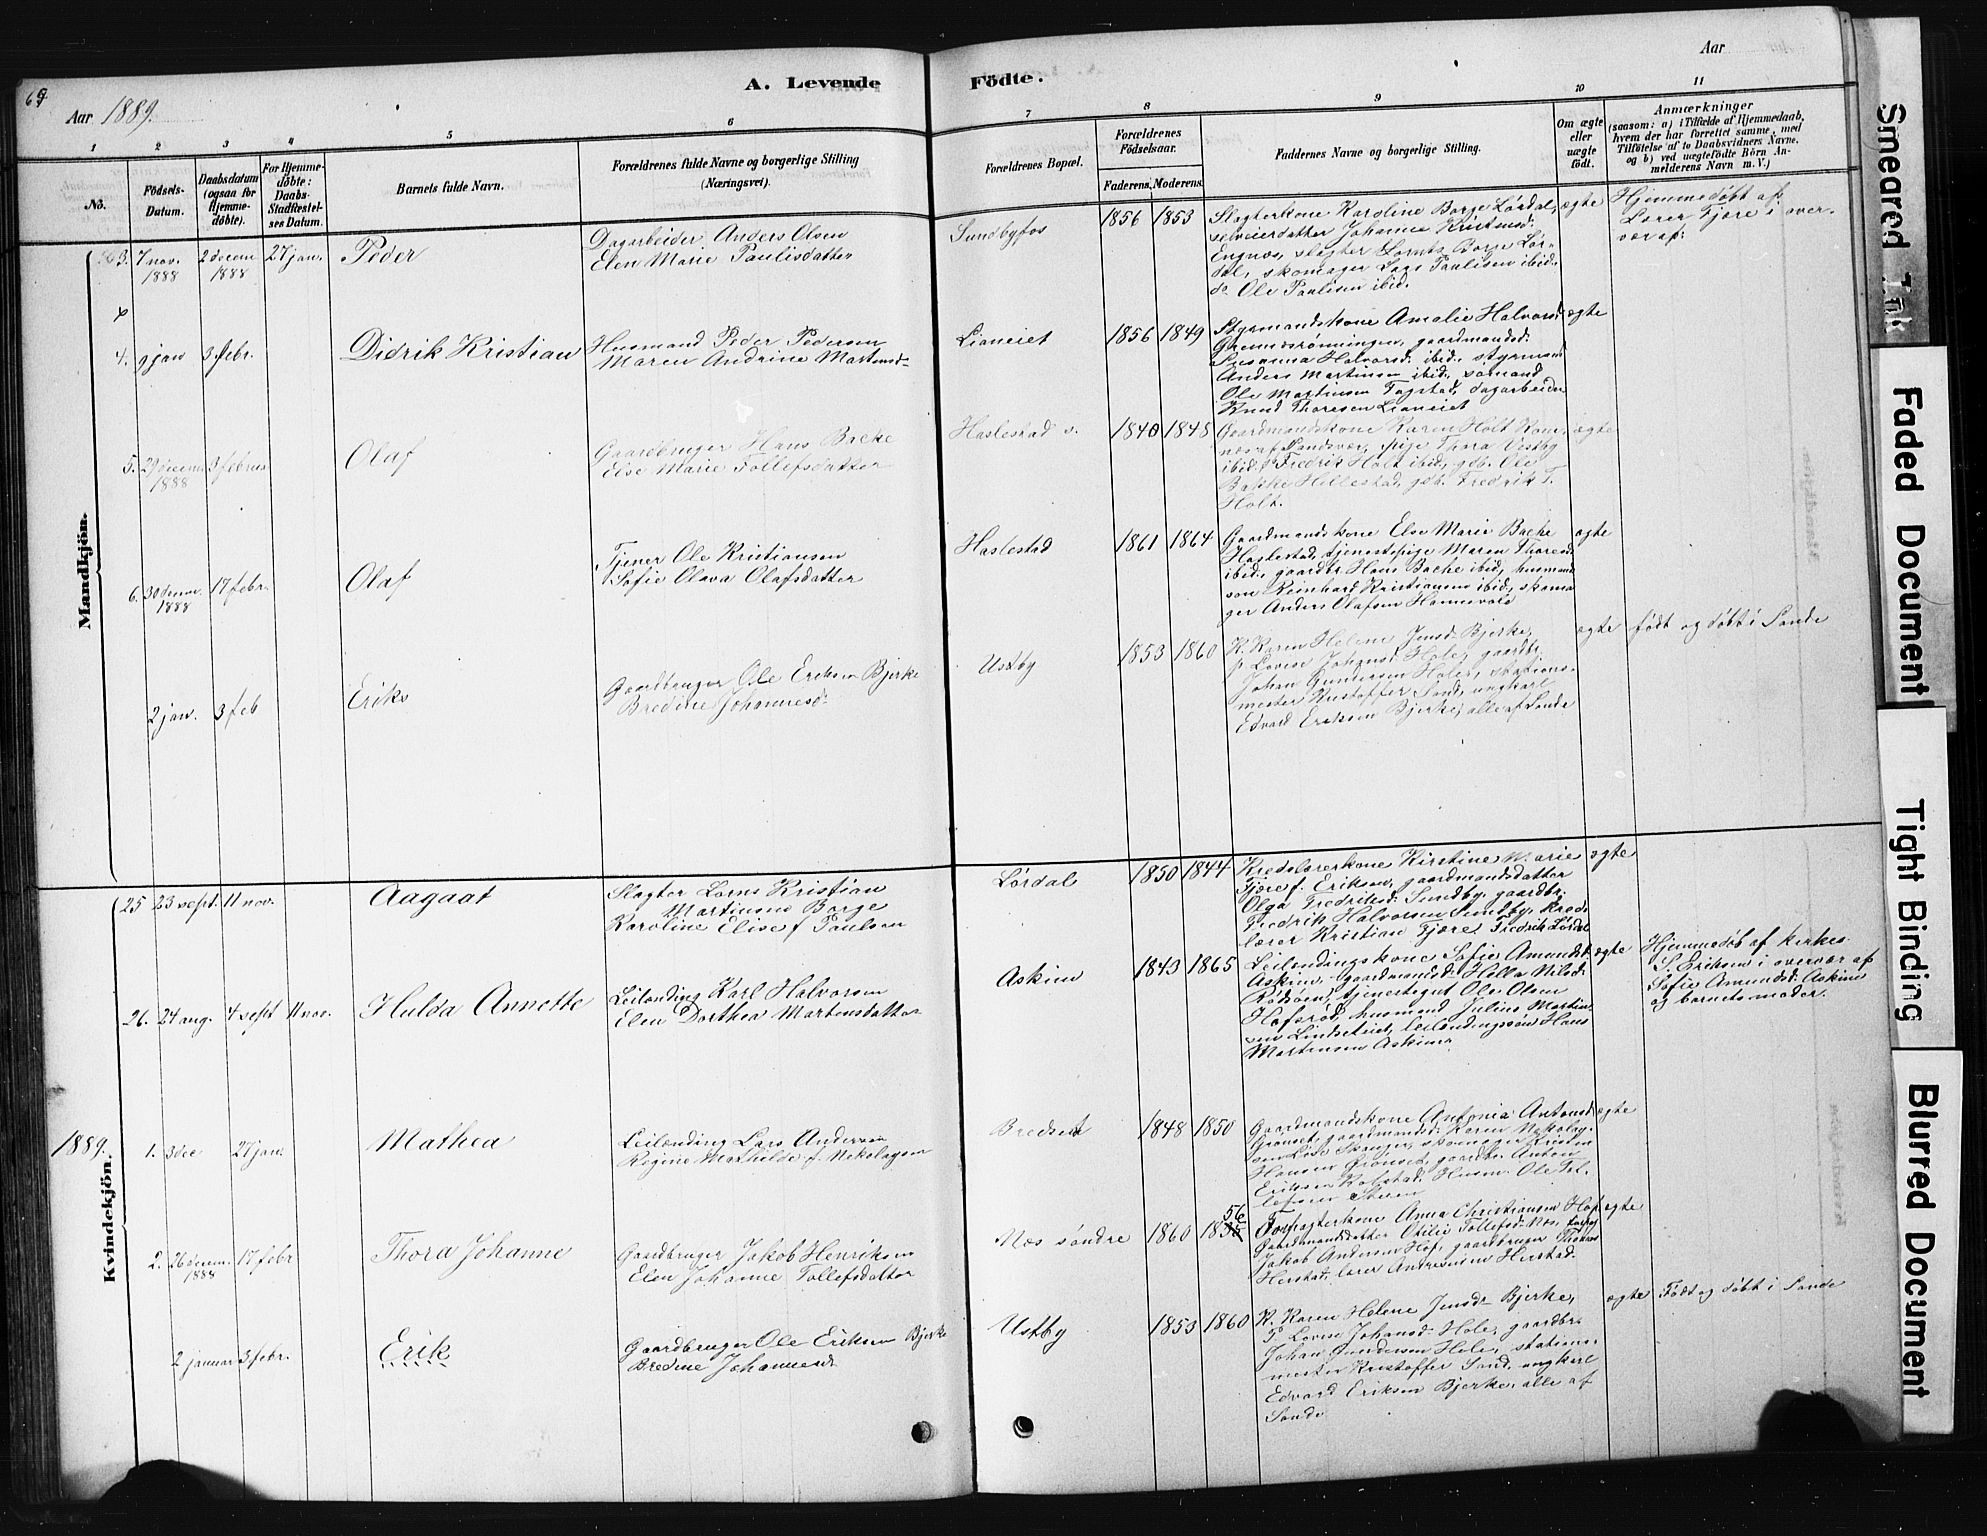 68
Aar 1889.
A. Levende Födte.
Aar
1
2
3
4
5
6
7
8
9
10
11
No.
Födsels-
Datum.
Daabsdatum
(ogsaa for
Hjemme-
döbte).
For Hjemme-
döbte:
Daabs-
Stadfæstel-
ses Datum.
Barnets fulde Navn.
Forældrenes fulde Navne og borgerlige Stilling
(Næringsvei).
Forældrenes Bopæl.
Forældrenes
Födselsaar.
Faderens. Moderens.
Faddernes Navne og borgerlige Stilling.
Om ægte
eller
uægte
födt.
Anmærkninger
(saasom: a) i Tilfælde af Hjemmedaab,
hvem der har forrettet samme, med
Tilföielse af to Daabsvidners Navne,
og b) ved uægtefödte Börn An-
melderens Navn m. V.)
Mandkjön.
3. 7 nov. 1888 2 decem 1888 27 jan. Peder
Dagarbeider Anders Olsen
Elen Marie Paulisdatter
Sundbyfos 1856 1853
Slagterkone Karoline Borge Lördal,
selveierdatter Johanne Kristensd:
Engnæs, slagter Lornts Borge Lör-
dal, skomager Lars Paulisen ibid.
do Ole Paulisen ibid.
ægte
Hjemmedöbt af
Lærer Fjære i over-
vær af:
4. 9 jan 3 febr. Didrik Kristian
Husmand Peder Pedersen
Maren Andrine Martinsd-
Lianeiet 1856 1849
Styrmandskone Amalie Halvorsd
Grennesrønningen, gaardmandsd:
Susanna Halvorsd: ibid., styrmand
Anders Martinsen ibid., sømand
Ole Martinsen Fagstad, dagarbeider
Knud Thoresen Lianeiet
ægte
5. 29 decem 1888 3 februa Olaf
Gaardbruger Hans Bache
Else Marie Tollefsdatter
Haslestad s. 1840 1848
Gaardmandskone Karen Holt Kone
næs af Sandsvær, pige Thora Vestby
ibid, Fredrik Holt ibid, gdb. Ole
Bakke Hillestad, gdb. Fredrik T.
Holt.
ægte
6. 30 decem. 1888 17 febr. Olaf
Tjener Ole Kristiansen
Sofie Olava Olafsdatter
Haslestad 1861 1864
Gaardmandskone Else Marie Bache
Haslestad, tjenestepige Maren Thoresd
ibid, gaardbr. Hans Bache ibid, husmand
søn Reinhard Kristiansen ibid, skoma
ger Anders Olafsen Hannevold
ægte
2 jan. 3 feb Eriks
Gaardbruger Ole Eriksen Bjerke
Bredine Johannesd:
Ustby 1853 1860
K. Karen Helene Jensd: Bjerke,
p. Lovise Johansd: Hole, gaardbr.
Johan Gundersen Hole, stations-
mester Kristoffer Sand, ungkarl
Edvard Eriksen Bjerke, alle af Sande
ægte
født og døbt i Sande
Kvindekjön.
25 23 sept. 11 nov. Aagaat
Slagter Lorns Kristian
Martinsen Borge
Karoline Elise f Paulsen
Lørdal 1850 1844
Kredslærerkone Kirstine Marie
Fjære f. Eriksen, gaardmandsdatter
Olga Fredriksd: Sundby, gaardbr.
Fredrik Halvorsen Sundby, Kreds-
lærer Kristian Fjære, Fredrik Lørdal
ægte
26. 24 aug. 4 sept 11 nov. Hulda Annette
Leilænding Karl Halvorsen
Elen Dorthea Martinsdatter
Askim 1843 1865
Leilændingskone Sofie Amundsd:
Askim, gaardmandsd: Hella Nilsd:
Rødsøen, tjenestegut Ole Olsen
Hafsrød, husmand Julius Martin-
sen Lindseteiet, leilændingssøn Hans
Martinsen Askim
ægte
Hjemmedøb af kirkes.
S. Eriksen i overvær af
Sofie Amundsd: Askim
og barnets moder.
1889. 1. 3 dec 27 jan. Mathea
Leilænding Lars Andersen
Regine Mathilde f. Nikolaysen
Bredset 1848 1850
Gaardmandskone Antonia Antonsd
Grønset, gaardmandsd: Karen Nikolay-
sen Lise Skauger, skomager Kristen
Hansen Grønset, gaardbr. Anton
Eriksen Kolstad. Husm. Ole Tol-
lefsen Steen
ægte
2. 26 decem. 1888 17 febr Thora Johanne
Gaardbruger Jakob Henriksen
Elen Johanne Tollefsdatter
Næs søndre 1860 1856
Forpagterkone Anna Christiansen Hof
Gaardmandsdatter Otilie Tollefsd: Næs, Forpag
Jakob Andersen Hof, gaardbruger Thomas
Herstad, lærer Andreassen Herstad.
ægte
2 januar 3 febr. Erik
Gaardbruger Ole Eriksen Bjerke
Bredine Johannesd:
Ustby 1853 1860
K. Karen Helene Jensd: Bjerke,
P. Lovise Johansd: Hole, gaardbr.
Johan Gundersen Hole, stations-
mester Kristoffer Sand, ungkarl
Edvard Eriksen Bjerke, alle af
Sande
ægte
Født og døbt i Sande
Smeared Ink
Faded Document
Tight Binding
Blurred Document